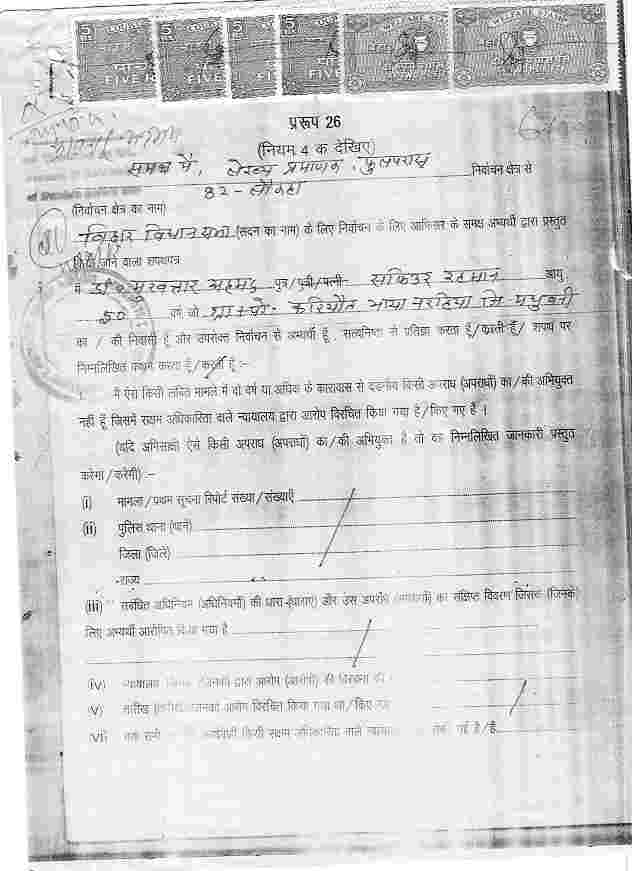 WELFARE STAMP
WELFARE STAMP
5 5 5 5
पाँच
FIVE R FIVE R FIVE FIVE
प्ररूप 26
(नियम 4 क देखिए)
समक्ष में, लेख्य प्रमाणक, फुलपरास निर्वाचन क्षेत्र से
82 - लौकहा
(निर्वाचन क्षेत्र का नाम)
बिहार विधान सभा (सदन का नाम) के लिए निर्वाचन के लिए आफिसर के समक्ष अभ्यर्थी द्वारा प्रस्तुत
किये जाने वाला शपथपत्र
मैं डॉ० मुख्तार अहमद पुत्र/पुत्री/पत्नी- सफिउर रहमान आयु
50 वर्ष जो ग्राम पो०- करियौत भाया नरहिया जि मधुबनी
का / की निवासी हूँ और उपरोक्त निर्वाचन से अभ्यर्थी हूँ, सत्यनिष्ठा से प्रतिज्ञा करता हूँ/करती हूँ/ शपथ पर
निम्नलिखित कथन करता हूँ/करती हूँ :-
1. मैं ऐसे किसी लंबित मामले में दो वर्ष या अधिक के कारावास से दंडनीय किसी अपराध (अपराधों) का/की अभियुक्त
नहीं हूँ जिसमें सक्षम अधिकारिता वाले न्यायालय द्वारा आरोप विरचित किया गया है/किए गए हैं ।
(यदि अभिसाक्षी ऐसे किसी अपराध (अपराधों) का/की अभियुक्त है तो वह निम्नलिखित जानकारी प्रस्तुत
करेगा/करेगी) :-
(i) मामला/प्रथम सूचना रिपोर्ट संख्या/संख्याएँ
(ii) पुलिस थाना (थाने)
जिला (जिले)
राज्य
(iii) संबंधित अधिनियम (अधिनियमों) की धारा (धाराएं) और उस अपराध (अपराधों) का संक्षिप्त विवरण जिसके (जिनके)
लिए अभ्यर्थी आरोपित किया गया है
(iv) न्यायालय द्वारा आरोप (आरोपों) की विरचना की
(v) तारीख जिनको आरोप विरचित किया गया था/किए गए
(vi) क्या सभी किसी सक्षम अधिकारिता वाले न्याया गई है/हैं